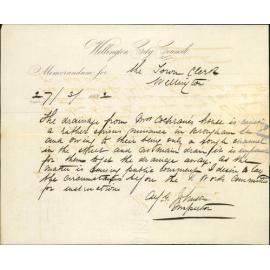 Wellington City Council
Memorandum for the Town Clerk
Wellington
27/3/1882
The drainage from Mrs Cochrane's house is causing
a rather serious nuisance in Brougham St
and owing to their being only a rough channel
in the street and certain
for them to get the drainage away. As the
matter is causing public complaint I desire to lay
the circumstances before the P. Works Committee
for instructions
Inspector